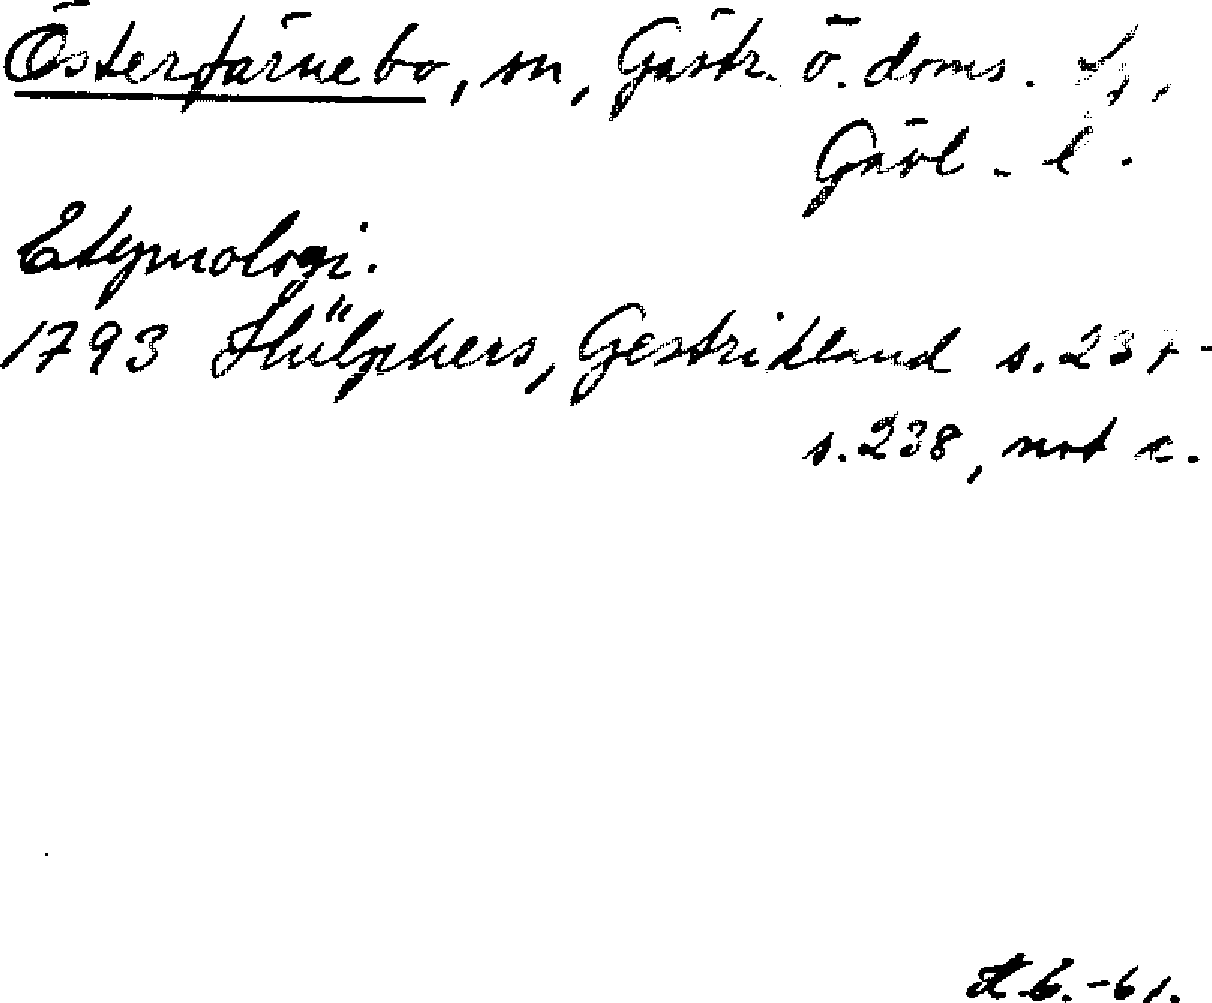 Österfärnebo, sn, Gästr. ö. doms.
Gävl. l.
Etymologi.
1793 Hülphers, Gestrikland s. 237-
s. 238, not c.
H.G. -61.